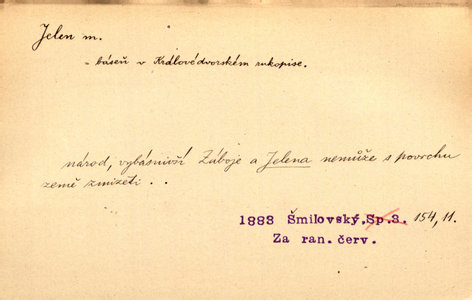 Jelen m.
- báseň v Královědvorském rukopise.
národ, vybásnivší Záboje a Jelena nemůže s povrchu
země zmizeti . .
1883 Šmilovský, Sp.3. 154, 11.
Za ran. červ.